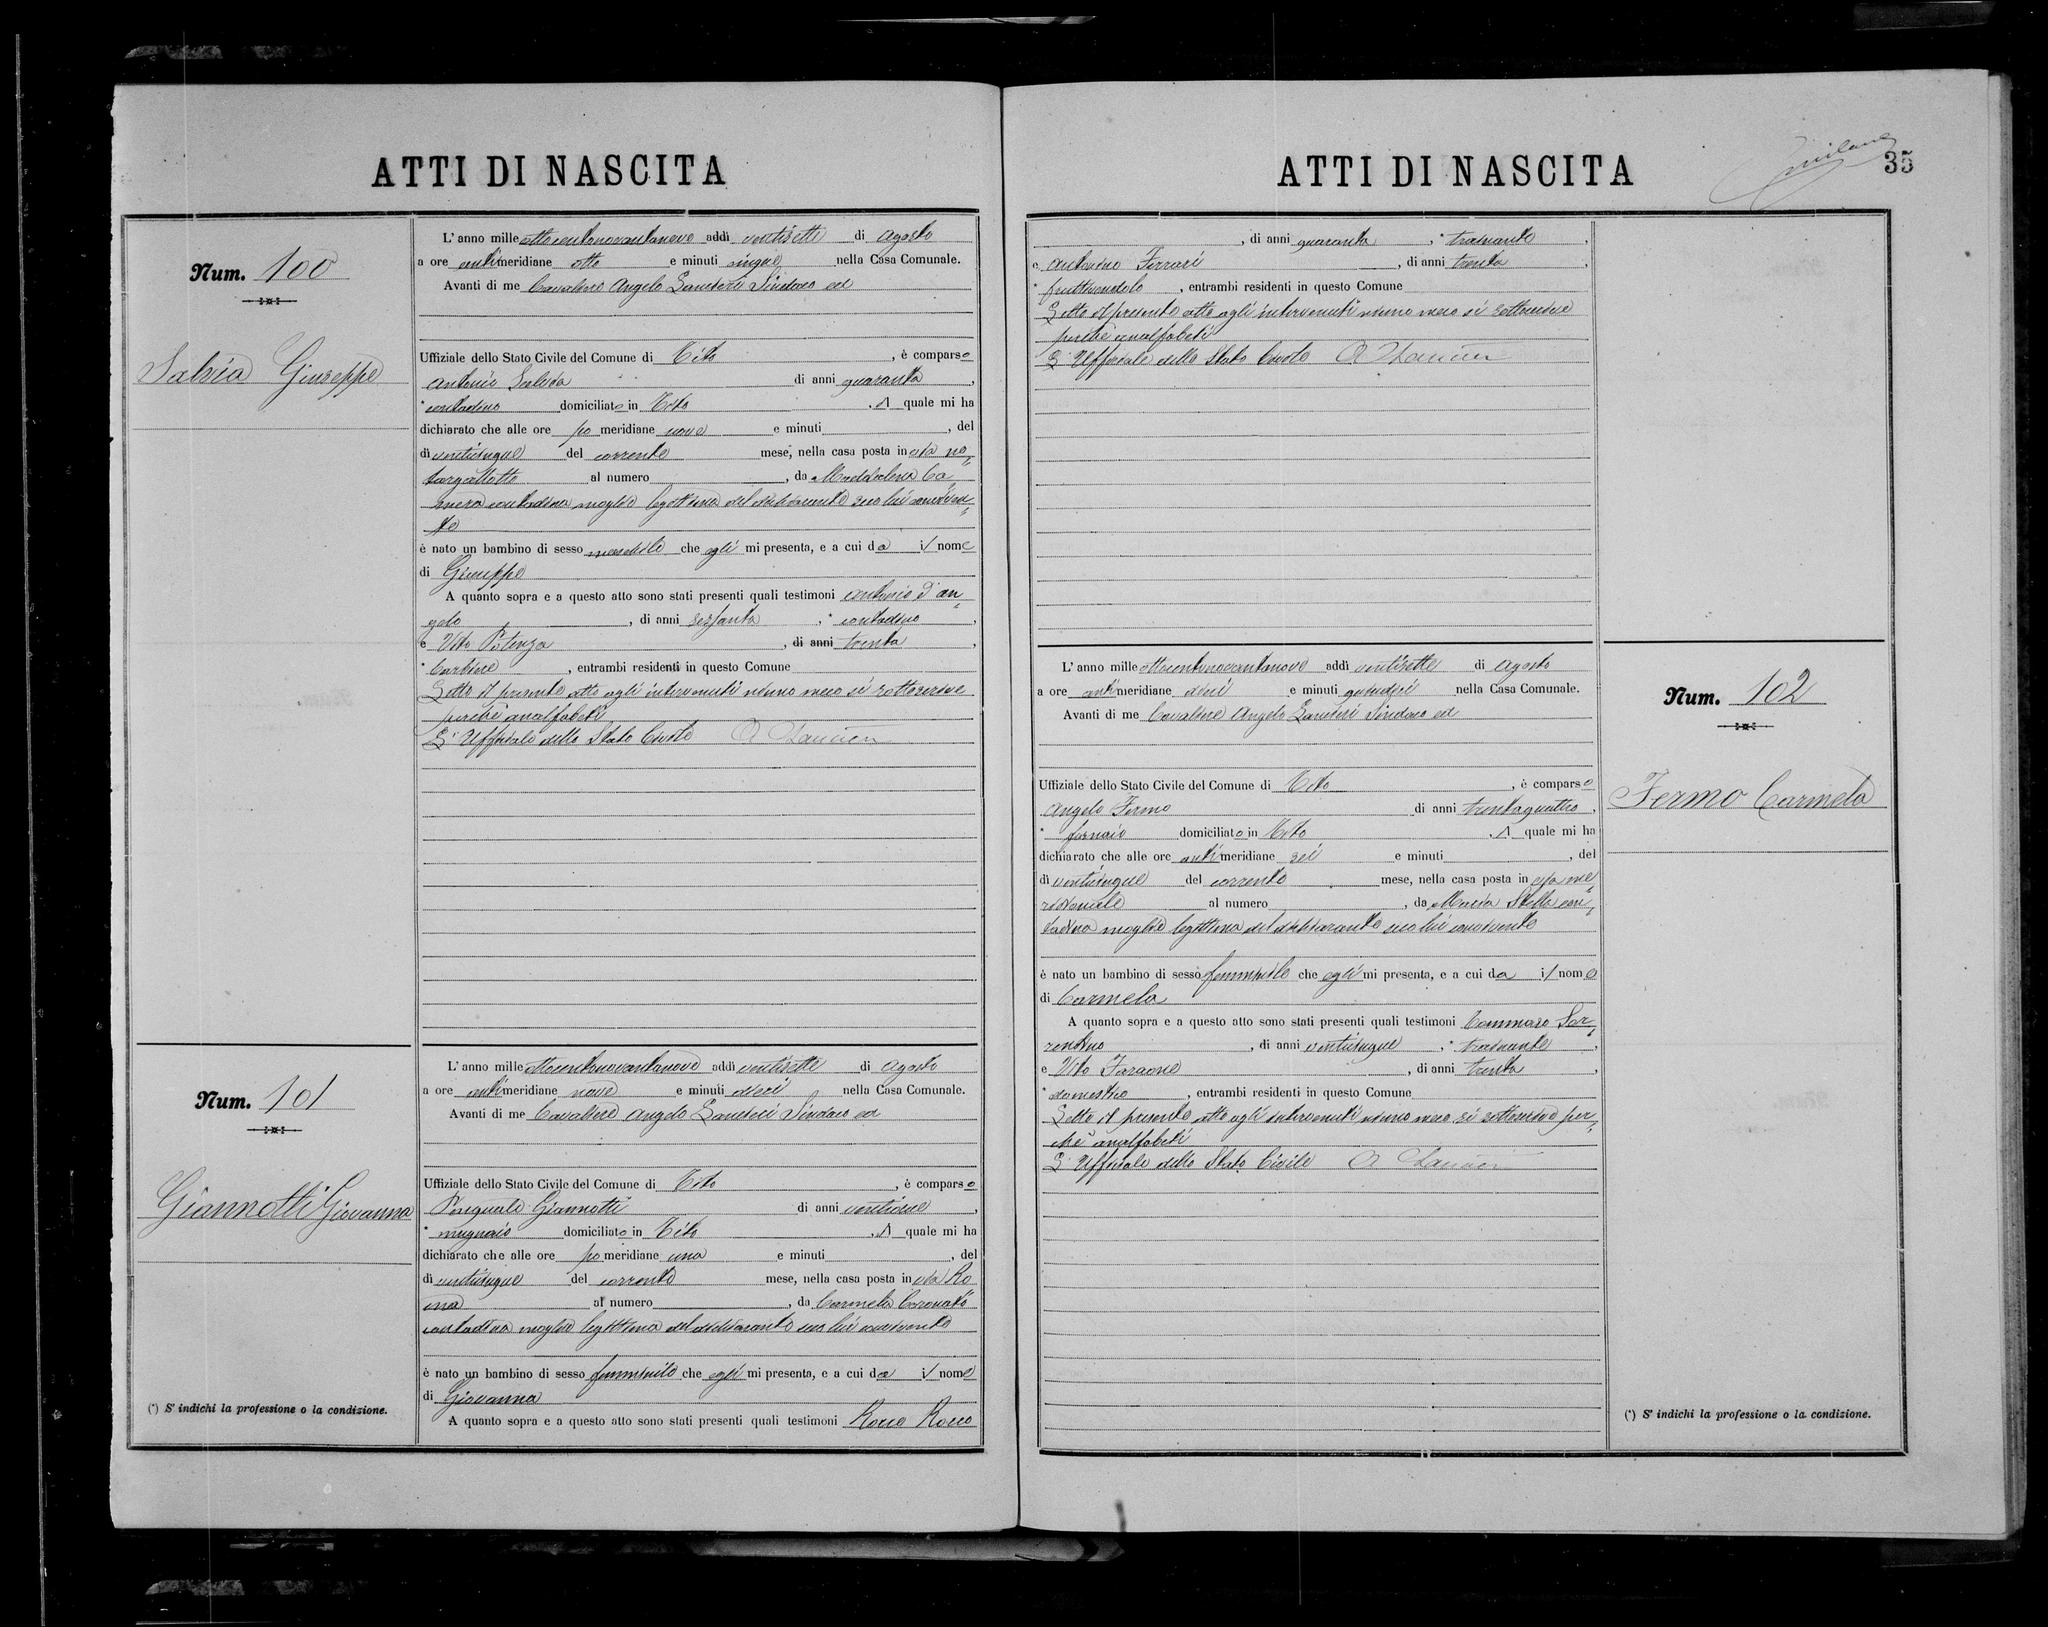 ATTI DI NASCITA
Num. 100
Salvia Giuseppe
L'anno milleottocentonovantanove addì ventisette di Agosto
a ore antimeridiane otto e minuti cinque nella Casa Comunale.
Avanti di me Cavaliere Angelo Sindaco ed
Uffiziale dello Stato Civile del Comune di Tito, è comparso
Antonio Salvia di anni quaranta,
* contadino domiciliato in Tito, il quale mi ha
dichiarato che alle ore pomeridiane nove e minuti, del
dì venticinque del corrente mese, nella casa posta in via
al numero, da Maddalena Ca=
contadina moglie legittima del dichiarante seco lui conviven=
te
è nato un bambino di sesso maschile che egli mi presenta, e a cui da il nome
di Giuseppe
A quanto sopra e a questo atto sono stati presenti quali testimoni Antonio D'An=
gelo, di anni sessanta, * contadino,
e Vito Potenza, di anni trenta,
* barbiere, entrambi residenti in questo Comune
Letto il presente atto agli intervenuti niuno meco si sottoscrive
perchè analfabeti
L'Uffiziale dello Stato Civile
Num. 101
Giannotti Giovanna
L'anno milleottocentonovantanove addì ventisette di Agosto
a ore antimeridiane nove e minuti dieci nella Casa Comunale.
Avanti di me Cavaliere Angelo Sindaco ed
Uffiziale dello Stato Civile del Comune di Tito, è comparso
Pasquale Giannotti di anni,
* mugnaio domiciliato in Tito, il quale mi ha
dichiarato che alle ore pomeridiane una e minuti, del
dì venticinque del corrente mese, nella casa posta in via Ro
ma al numero, da Carmela
contadina moglie legittima del dichiarante seco lui convivente
è nato un bambino di sesso femminile che egli mi presenta, e a cui da il nome
di Giovanna
A quanto sopra e a questo atto sono stati presenti quali testimoni Rocco Rocco
(*) S'indichi la professione o la condizione.
ATTI DI NASCITA
35
, di anni quaranta, * trainante,
e Antonino Ferrari, di anni trenta,
* fruttivendolo, entrambi residenti in questo Comune
Letto il presente atto agli intervenuti niuno meco si sottoscrive
perchè analfabeti
L'Uffiziale dello Stato Civile
Num. 102
Fermo Carmela
L'anno milleottocentonovantanove addì ventisette di Agosto
a ore antimeridiane dieci e minuti quindici nella Casa Comunale.
Avanti di me Cavaliere Angelo Sindaco ed
Uffiziale dello Stato Civile del Comune di Tito, è comparso
Angelo Fermo di anni trentaquattro,
* fornaio domiciliato in Tito, il quale mi ha
dichiarato che alle ore antimeridiane sei e minuti, del
dì venticinque del corrente mese, nella casa posta in via me=
ridionale al numero, da Maria Stella con=
tadina moglie legittima del dichiarante seco lui convivente
è nato un bambino di sesso femminile che egli mi presenta, e a cui da il nome
di Carmela
A quanto sopra e a questo atto sono stati presenti quali testimoni Tommaso Sor=
rentino, di anni venticinque, * trainante,
e Vito Faraone, di anni trenta,
* domestico, entrambi residenti in questo Comune
Letto il presente atto agli intervenuti niuno meco si sottoscrive per=
chè analfabeti
L'Uffiziale dello Stato Civile
(*) S'indichi la professione o la condizione.